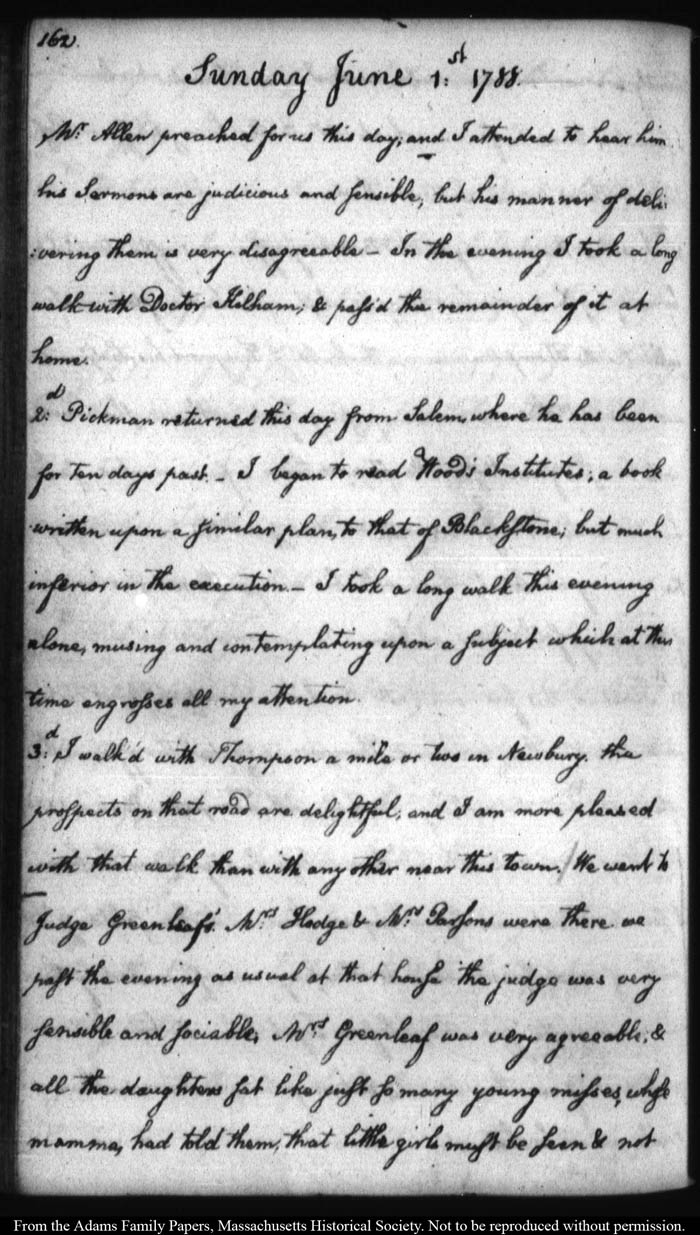 162.
Sunday June 1:st 1788.
Mr. Allen preached for us this day; and I attended to hear him
his Sermons are judicious and sensible, but his manner of deli:
:vering them is very disagreeable — In the evening I took a long
walk with Doctor Kilham; & pass'd the remainder of it at
home.
2:d Pickman returned this day from Salem, where he has been
for ten days past. — I began to read Wood's Institutes; a book
written upon a similar plan, to that of Blackstone; but much
inferior in the execution. — I took a long walk this evening
alone, musing and contemplating upon a subject which at this
time engrosses all my attention.
3:d I walk'd with Thompson a mile or two in Newbury. the
prospects on that road are delightful; and I am more pleased
with that walk than with any other near this town. We went to
Judge Greenleaf's. Mrs. Hodge & Mrs. Parsons were there we
past the evening as usual at that house the judge was very
sensible and sociable, Mrs. Greenleaf was very agreeable; &
all the daughters sat like just so many young misses, whose
mamma, had told them, that little girls must be seen & not
From the Adams Family Papers, Massachusetts Historical Society. Not to be reproduced without permission.